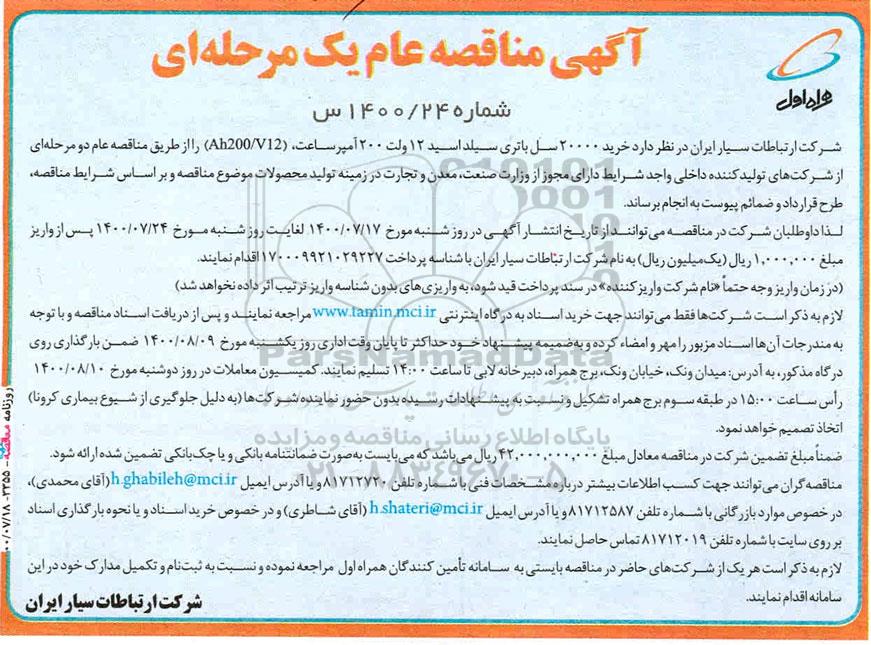 آگهی مناقصه عام یک مرحله‌ای
همراه اول
شماره ۱۴۰۰/۲۴ س
شرکت ارتباطات سیار ایران در نظر دارد خرید ۲۰۰۰۰ سل باتری سیلد اسید ۱۲ ولت ۲۰۰ آمپرساعت، (Ah200/V12) را از طریق مناقصه عام دو مرحله‌ای
از شرکت‌های تولیدکننده داخلی واجد شرایط دارای مجوز از وزارت صنعت، معدن و تجارت در زمینه تولید محصولات موضوع مناقصه و بر اساس شرایط مناقصه،
طرح قرارداد و ضمائم پیوست به انجام برساند.
لذا داوطلبان شرکت در مناقصه می‌توانند از تاریخ انتشار آگهی در روز شنبه مورخ ۱۴۰۰/۰۷/۱۷ لغایت روز شنبه مورخ ۱۴۰۰/۰۷/۲۴ پس از واریز
مبلغ ۱,۰۰۰,۰۰۰ ریال (یک میلیون ریال) به نام شرکت ارتباطات سیار ایران با شناسه پرداخت ۱۷۰۰۰۹۹۲۱۰۲۹۲۲۷ اقدام نمایند.
(در زمان واریز وجه حتماً «نام شرکت واریز کننده» در سند پرداخت قید شود، به واریزی‌های بدون شناسه واریز ترتیب اثر داده نخواهد شد)
لازم به ذکر است شرکت‌ها فقط می‌توانند جهت خرید اسناد به درگاه اینترنتی www.tamin.mci.ir مراجعه نمایند و پس از دریافت اسناد مناقصه و با توجه
به مندرجات آن‌ها اسناد مزبور را مهر و امضاء کرده و به‌ضمیمه پیشنهاد خود حداکثر تا پایان وقت اداری روز یکشنبه مورخ ۱۴۰۰/۰۸/۰۹ ضمن بارگذاری روی
درگاه مذکور، به آدرس: میدان ونک، خیابان ونک، برج همراه، دبیرخانه لابی تا ساعت ۱۴:۰۰ تسلیم نمایند. کمیسیون معاملات در روز دوشنبه مورخ ۱۴۰۰/۰۸/۱۰
رأس ساعت ۱۵:۰۰ در طبقه سوم برج همراه تشکیل و نسبت به پیشنهادات رسیده بدون حضور نماینده شرکت‌ها (به دلیل جلوگیری از شیوع بیماری کرونا)
اتخاذ تصمیم خواهد نمود.
ضمناً مبلغ تضمین شرکت در مناقصه معادل مبلغ ۴۲,۰۰۰,۰۰۰,۰۰۰ ریال می‌باشد که می‌بایست به‌صورت ضمانتنامه بانکی و یا چک‌بانکی تضمین شده ارائه شود.
مناقصه‌گران می‌توانند جهت کسب اطلاعات بیشتر درباره مشخصات فنی با شماره تلفن ۸۱۷۱۲۷۲۰ و یا آدرس ایمیل h.ghabileh@mci.ir (آقای محمدی)،
در خصوص موارد بازرگانی با شماره تلفن ۸۱۷۱۲۵۸۷ و یا آدرس ایمیل h.shateri@mci.ir (آقای شاطری) و در خصوص خرید اسناد و یا نحوه بارگذاری اسناد
بر روی سایت با شماره تلفن ۸۱۷۱۲۰۱۹ تماس حاصل نمایند.
لازم به ذکر است هر یک از شرکت‌های حاضر در مناقصه بایستی به سامانه تأمین کنندگان همراه اول مراجعه نموده و نسبت به ثبت‌نام و تکمیل مدارک خود در این
سامانه اقدام نمایند.
شرکت ارتباطات سیار ایران
ParsNamadData
پایگاه اطلاع رسانی مناقصه و مزایده
۰۲۱-۸۸۳۴۹۶۷۰-۵
روزنامه مناقصه - ۲۳۵۵ - ۰۰/۰۷/۱۸